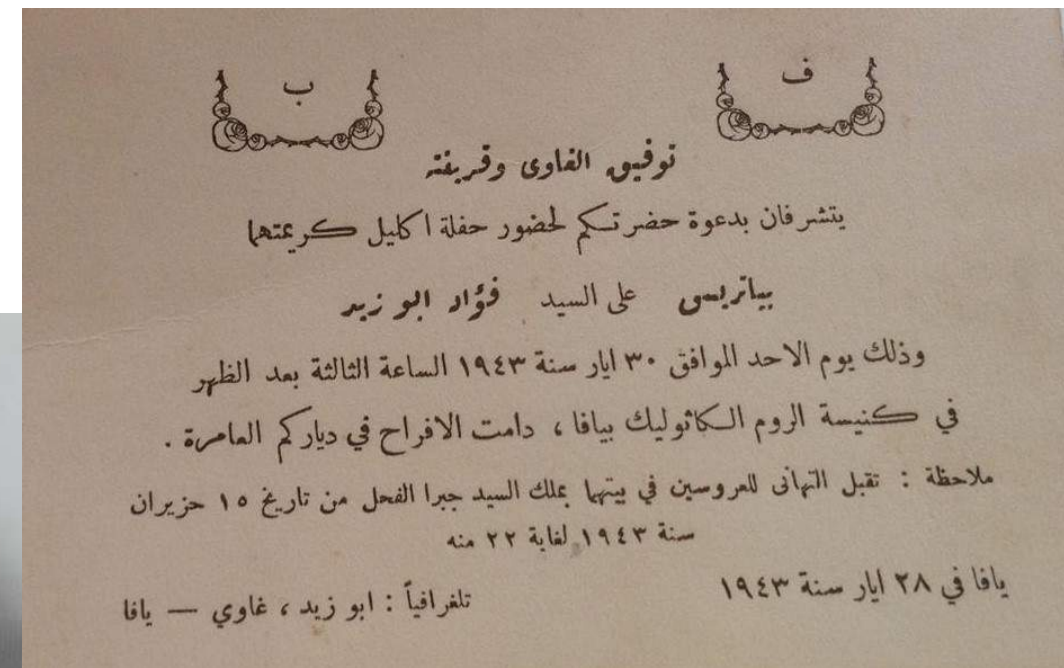 ف ب
توفيق الغاوى وقرينته
يتشرفان بدعوة حضرتكم لحضور حفلة اكليل كريمتهما
بياتريس على السيد فؤاد ابو زيد
وذلك يوم الاحد الموافق ٣٠ ايار سنة ١٩٤٣ الساعة الثالثة بعد الظهر
في كنيسة الروم الكاثوليك بيافا ، دامت الافراح في دياركم العامرة .
ملاحظة : تقبل التهانى للعروسين في بيتهما بملك السيد جبرا الفحل من تاريخ ١٥ حزيران
سنة ١٩٤٣ لغاية ٢٢ منه
يافا في ٢٨ ايار سنة ١٩٤٣ تلغرافياً : ابو زيد ، غاوي — يافا